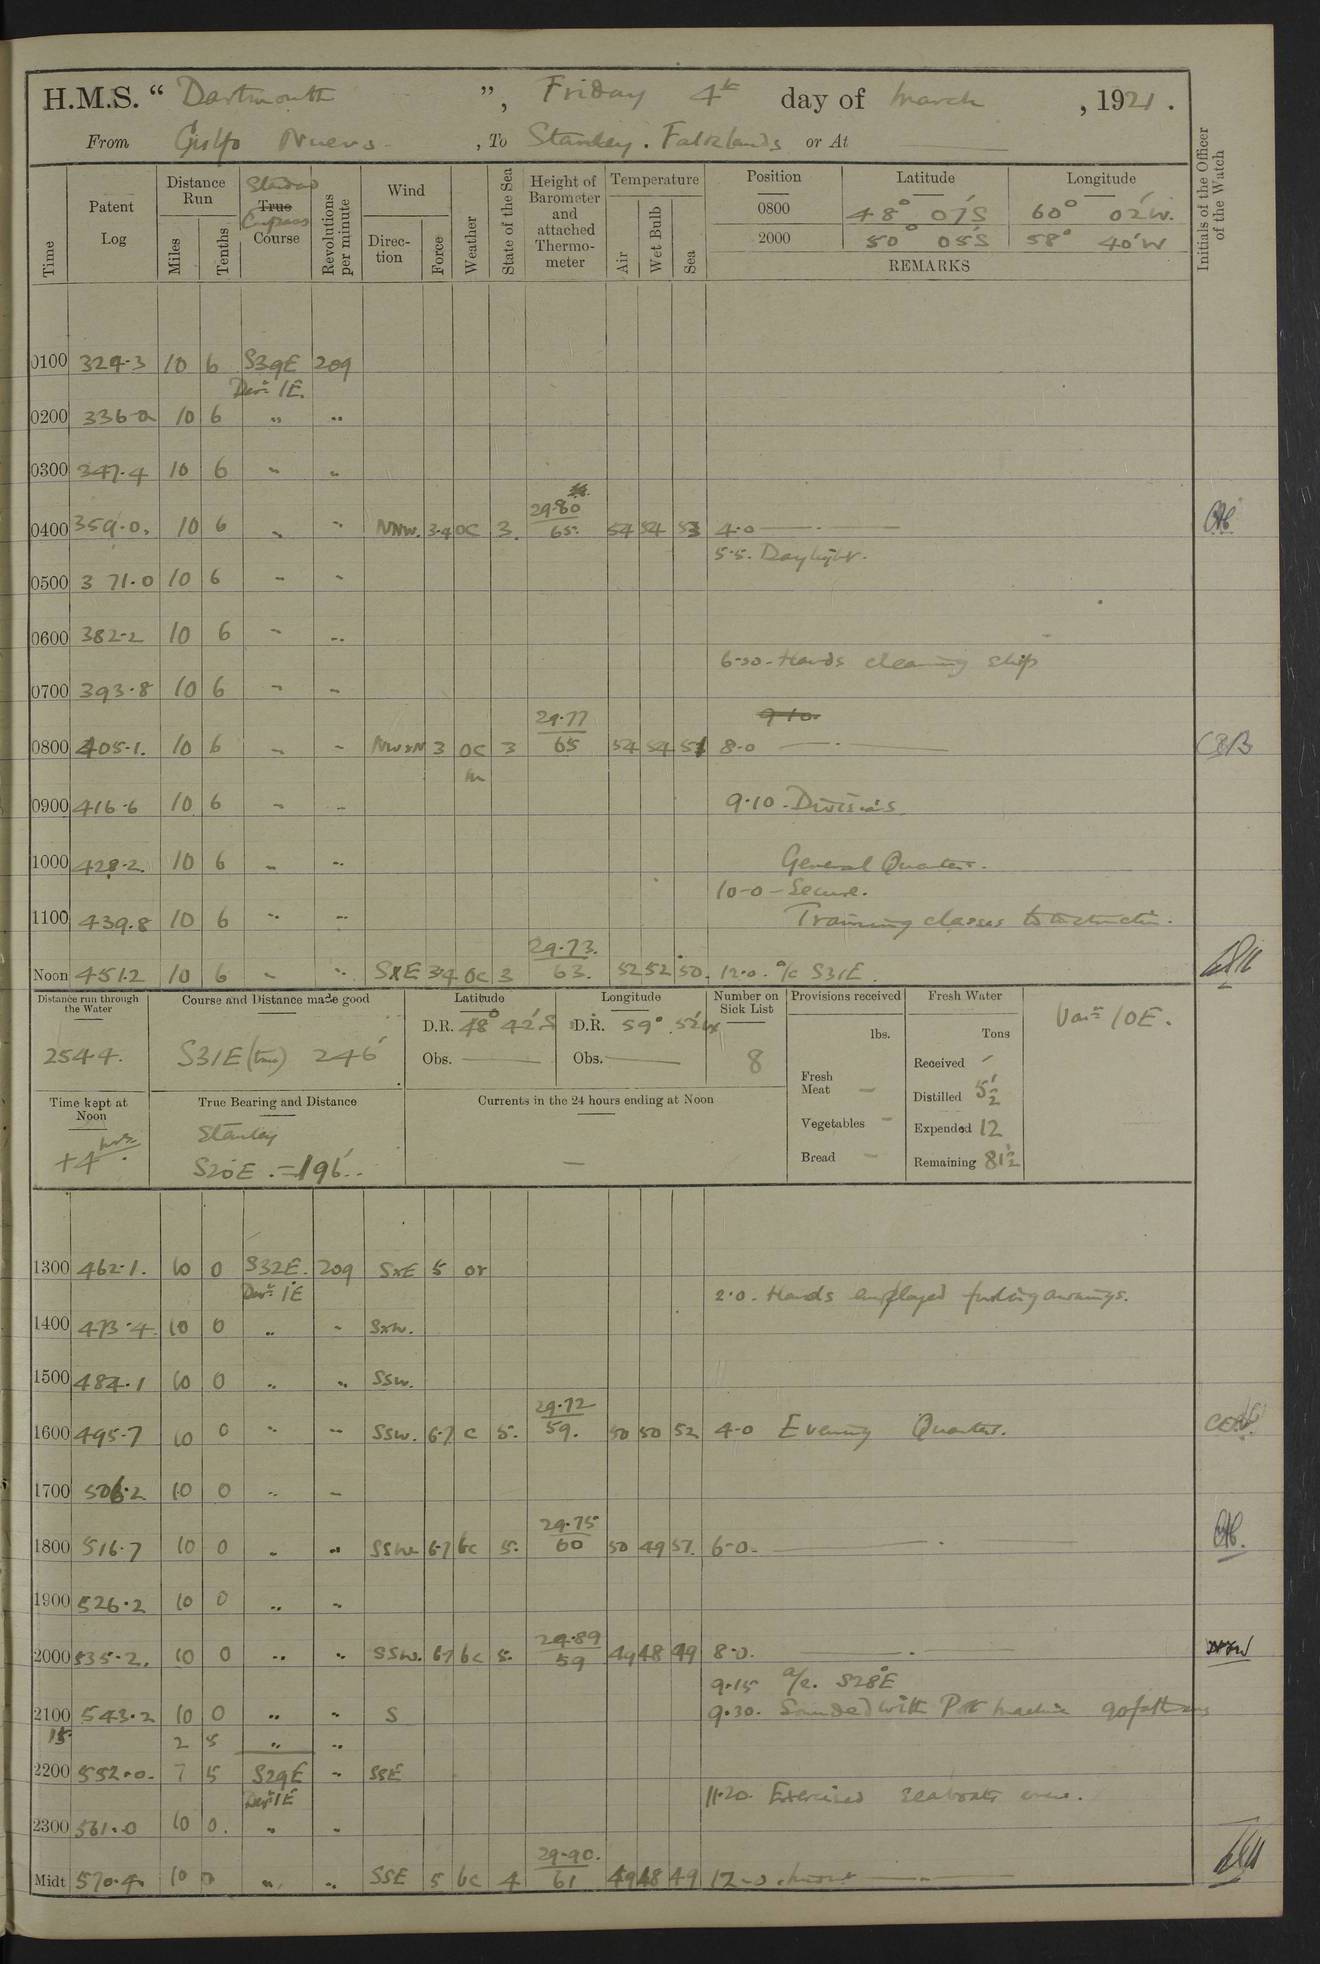 H.M.S. “ Dartmouth ”, Friday 4th day of March , 1921 .
From Golfo Nuevo , To Stanley . Falklands or At
Time Patent Log Distance Run Miles Tenths Standard True Compass Course Revolutions per minute Wind Direction Force Weather State of the Sea Height of Barometer and attached Thermometer Temperature Air Wet Bulb Sea Position Latitude Longitude Initials of the Officer of the Watch
0800 48° 07'S 60° 02'W.
2000 50° 05'S 58° 40'W
REMARKS
0100 324.3 10 6 S39E 209
Devn 1E.
0200 336.0 10 6 " "
0300 347.4 10 6 " "
0400 359.0. 10 6 " " NNW. 3.4 OC 3. 29.80 65. 54 54 53 4.0
5.5. Daylight.
0500 371.0 10 6 " "
0600 382.2 10 6 " "
6.30 - Hands cleaning ship
0700 393.8 10 6 " "
9.10.
0800 405.1. 10 6 " " NWxN 3 OC m 3 29.77 65 54 54 51 8.0 CBB
0900 416.6 10 6 " " 9.10 - Divisions
1000 428.2 10 6 " " General Quarters.
10-0 - Secure.
1100 439.8 10 6 " " Training classes to instruction.
Noon 451.2 10 6 " " SxE 3.4 OC 3 29.73. 63. 52 52 50. 12.0. a/c S31E.
Distance run through the Water Course and Distance made good Latitude Longitude Number on Sick List Provisions received Fresh Water
254.4. S31E (true) 246' D.R. 48° 42'S D.R. 59° 52'W 8 lbs. Tons Varn 10E.
Obs. Obs.
Fresh Meat — Received
Distilled 5 1/2
Time kept at Noon True Bearing and Distance Currents in the 24 hours ending at Noon
Vegetables - Expended 12
+4 hrs. Stanley S20E. = 196'. —
Bread - Remaining 81 1/2
1300 462.1. 10 0 S32E. 209 SxE 5 or
Devn 1E
2.0. Hands employed furling awnings.
1400 473.4 10 0 " " SxW.
1500 484.1 10 0 " " SSW.
1600 495.7 10 0 " " SSW. 6.7 C 5. 29.72 59. 50 50 52 4-0 Evening Quarters.
1700 506.2 10 0 " "
1800 516.7 10 0 " " SSW 6.7 bc 5. 29.75 60 50 49 51. 6-0.
1900 526.2 10 0 " "
2000 535.2. 10 0 " " SSW. 6.7 bc 5. 29.89 59 49 48 49 8.0.
9.15 a/c. S28E
2100 543.2 10 0 " " S 9.30. Sounded with Pat machine 90 fathoms
15. 2 5 " "
2200 552.0. 7 5 S29E " SSE
Devn 1E
11.20. Exercised seaboats crew.
2300 561.0 10 0. " "
Midt 570.4 10 0 " " SSE 5 bc 4 29.90. 61 49 48 49 12-0